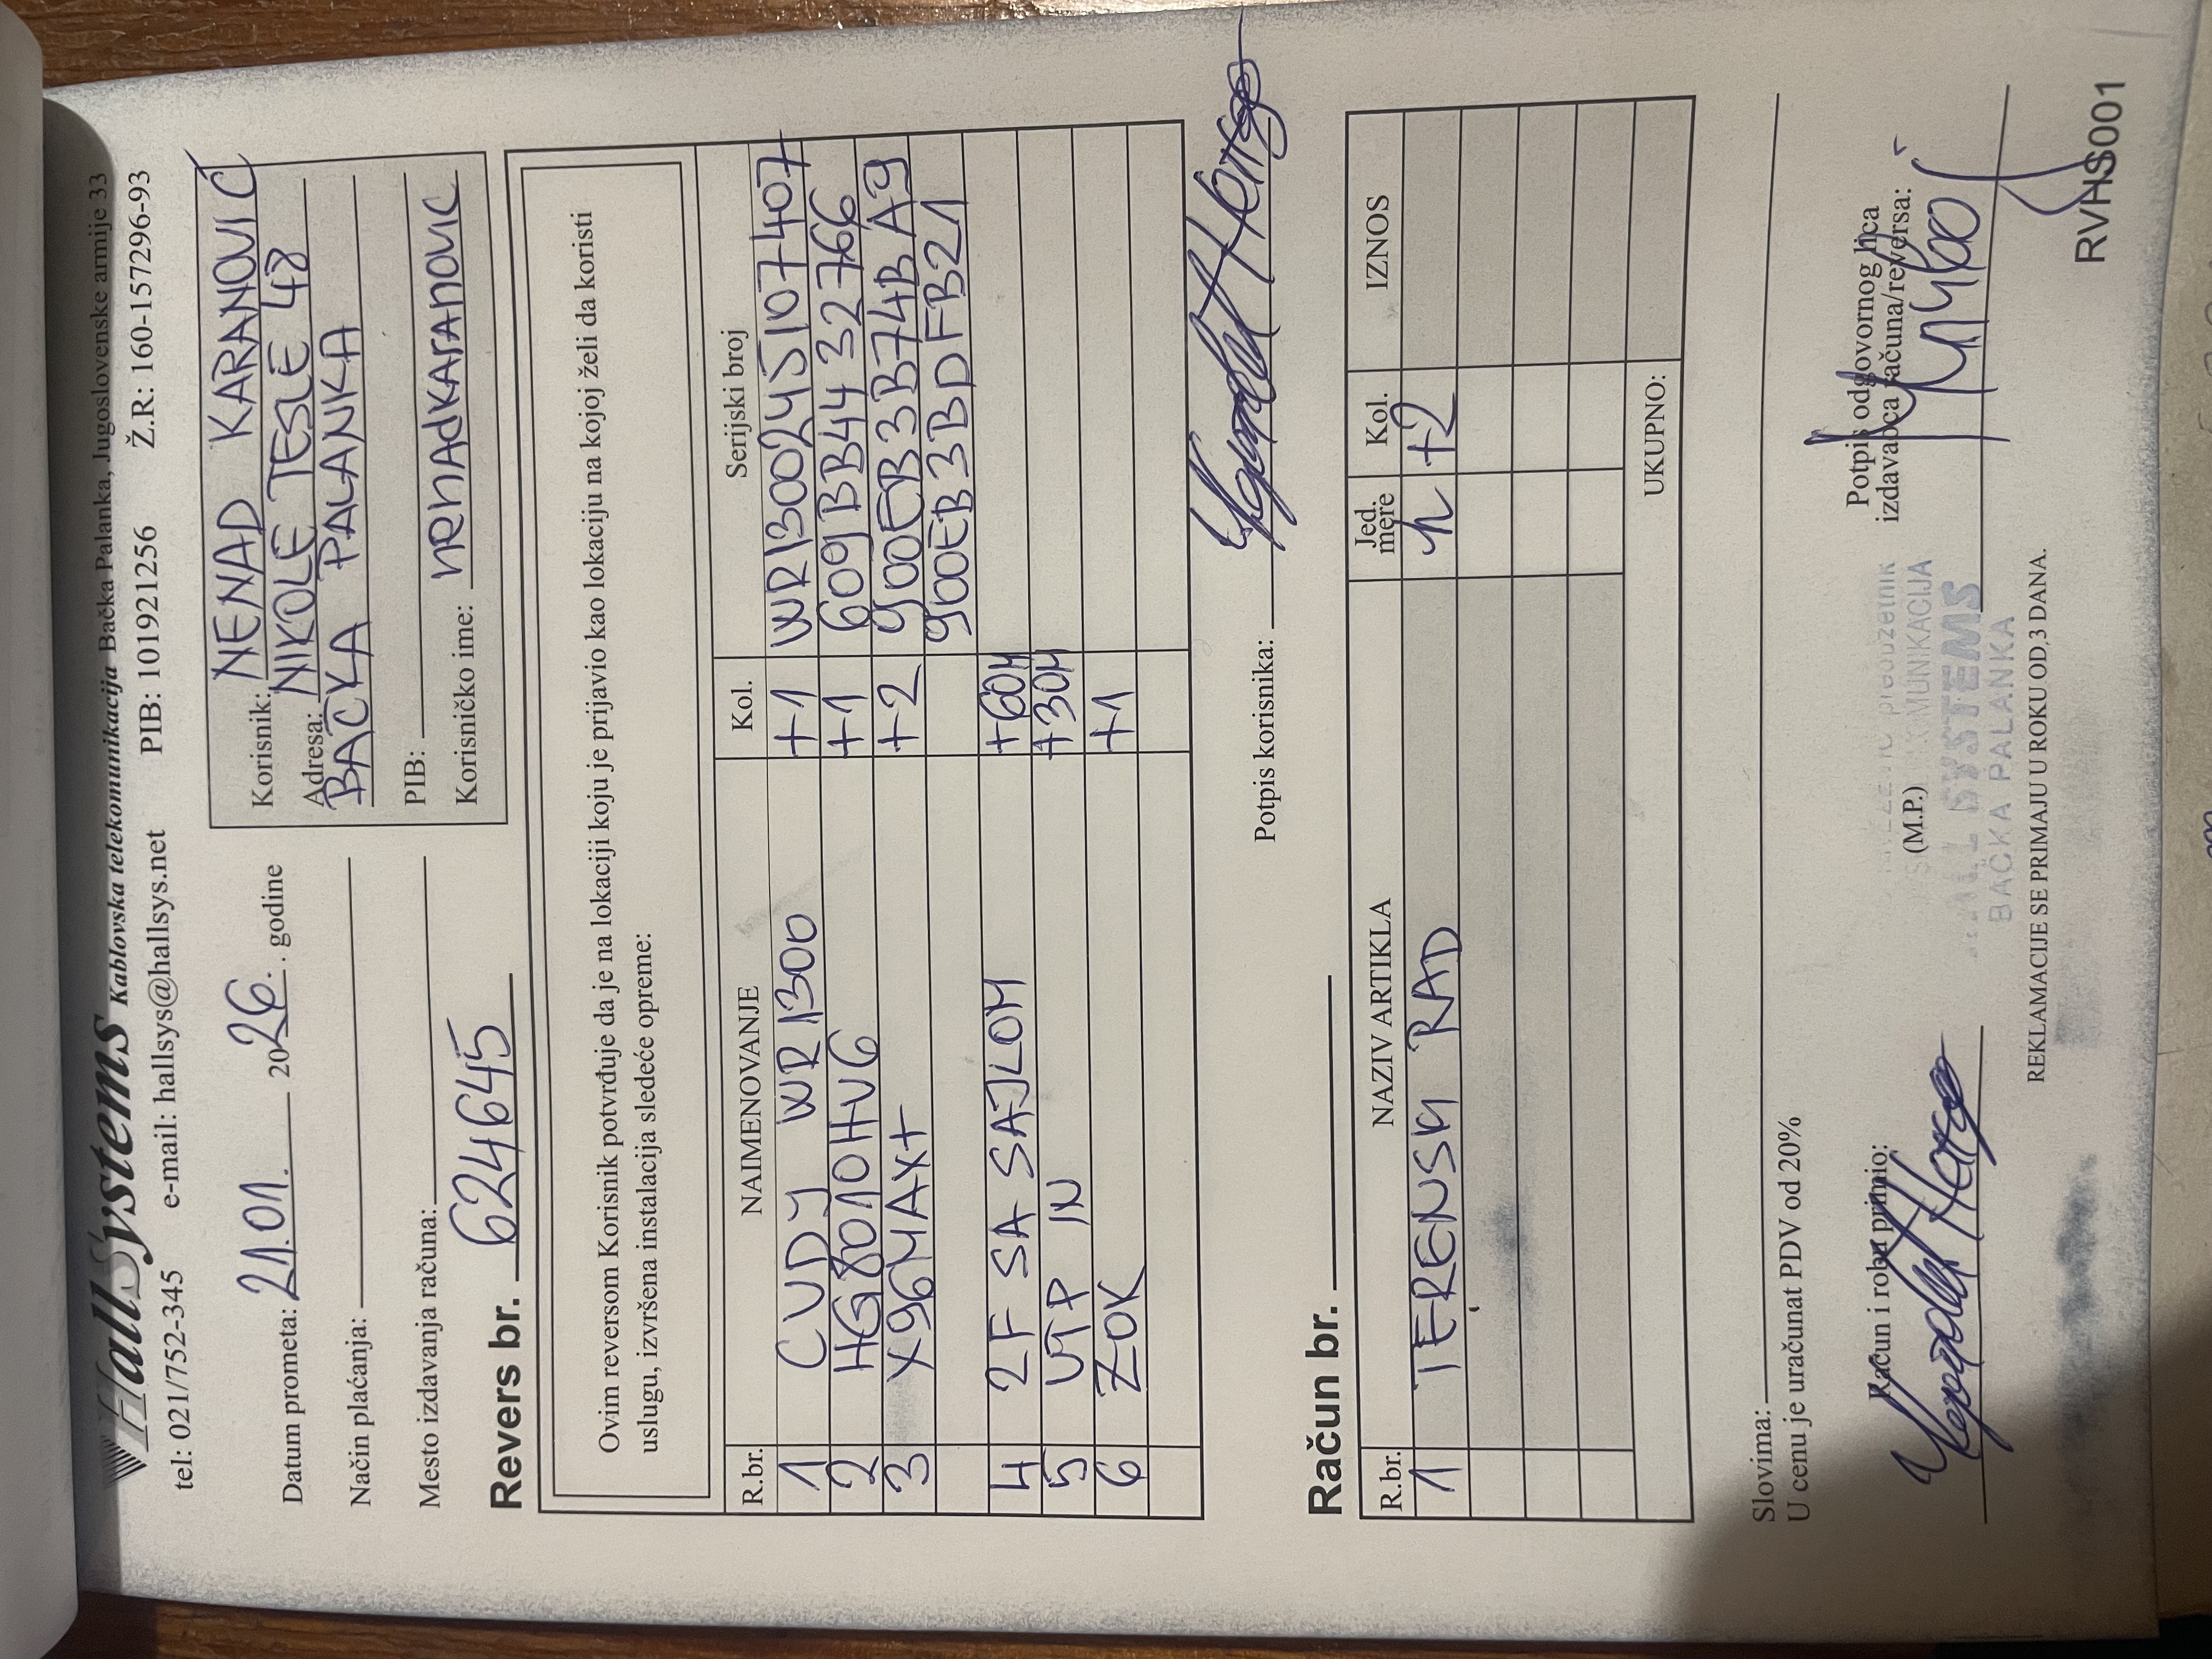 HallSystems Kablovska telekomunikacija Bačka Palanka, Jugoslovenske armije 33
tel: 021/752-345 e-mail: hallsys@hallsys.net PIB: 101921256 Ž.R: 160-157296-93
Datum prometa: 21.01. 2026. godine
Način plaćanja:
Mesto izdavanja računa:
Korisnik: NENAD KARANOVIĆ
Adresa: NIKOLE TESLE 48
BAČKA PALANKA
PIB:
Korisničko ime: nenadkaranovic
Revers br. 624645
Ovim reversom Korisnik potvrđuje da je na lokaciji koju je prijavio kao lokaciju na kojoj želi da koristi
uslugu, izvršena instalacija sledeće opreme:
R.br. NAIMENOVANJE Kol. Serijski broj
1 CUDY WR1300 +1 WR1300245107407
2 HG8010HV6 +1 609BB4432766
3 X96MAX+ +2 900EB3B74BA9
900EB3BDFB21
4 2F SA SAJLOM +60M
5 UTP IN +30M
6 ZOK +1
Potpis korisnika:
Račun br.
R.br. NAZIV ARTIKLA Jed. mere Kol. IZNOS
1 TERENSKI RAD h +2
UKUPNO:
Slovima:
U cenu je uračunat PDV od 20%
Račun i robu primio:
(M.P.)
Potpis odgovornog lica
izdavaoca računa/reversa:
SYSTEMS
BAČKA PALANKA
REKLAMACIJE SE PRIMAJU U ROKU OD 3 DANA.
RVHS001